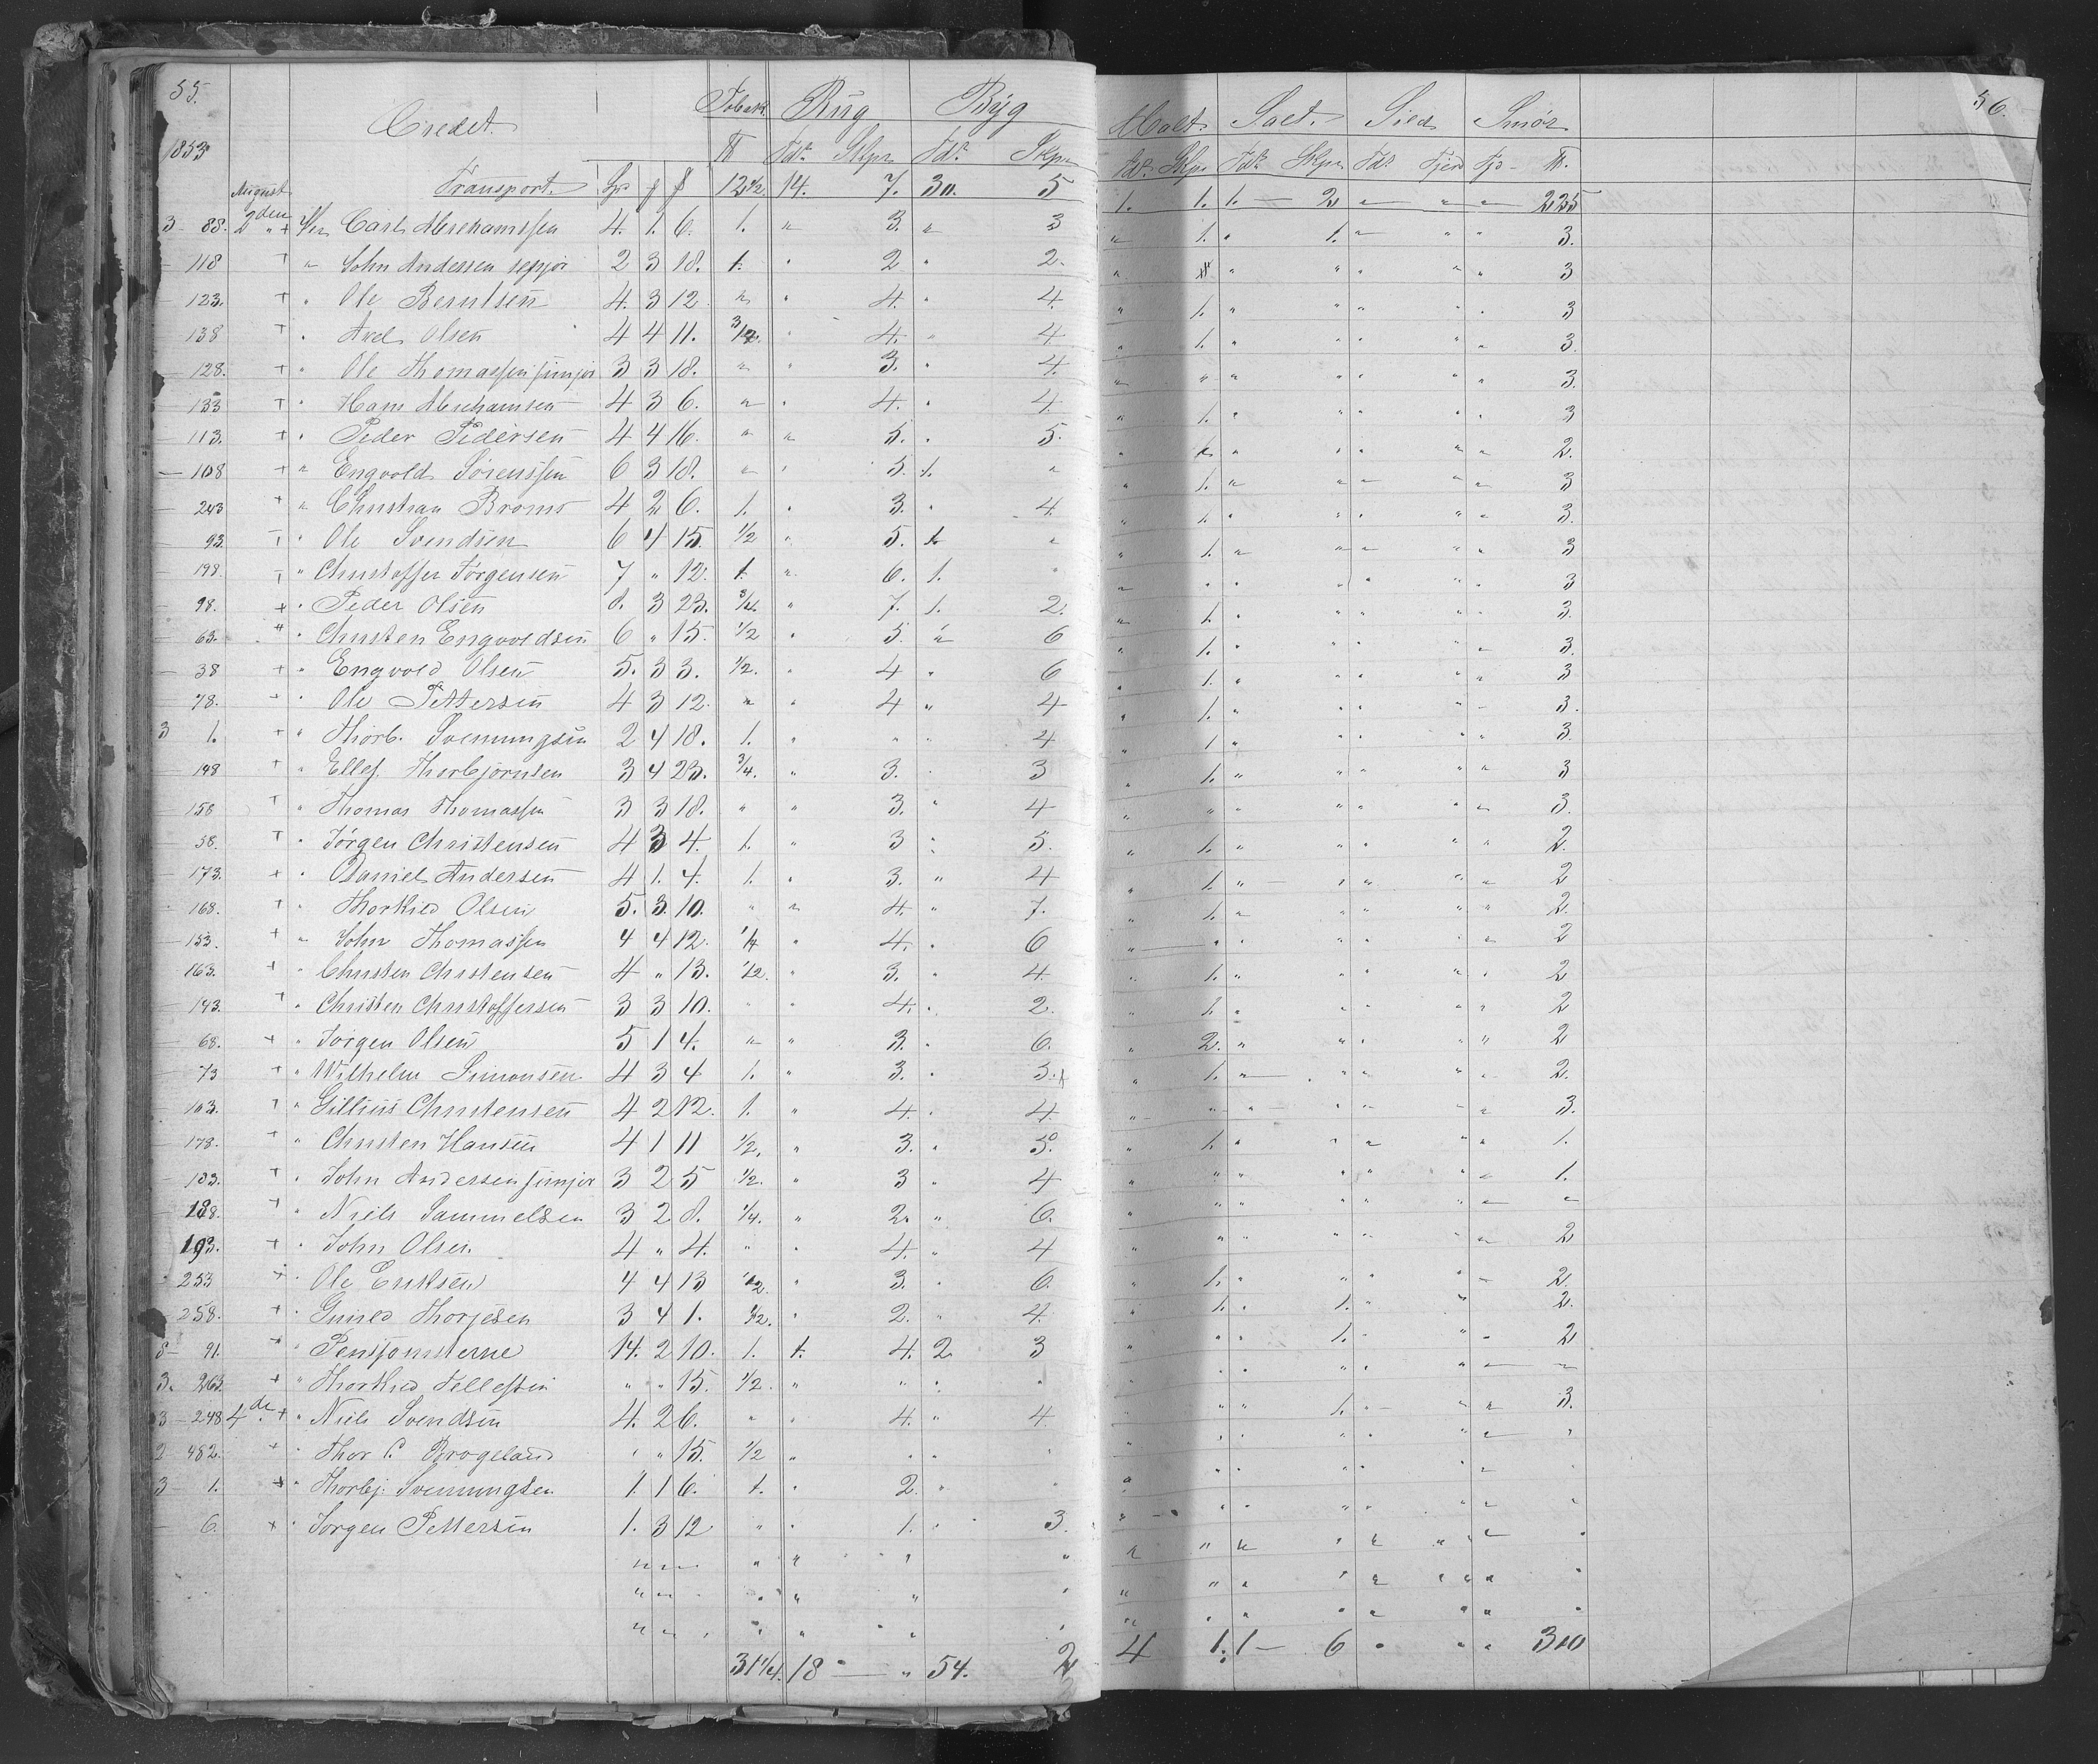 55.
Credet.
Tobak Rug Byg
1853
℔ Tdr Skpr Tdr Skpr
August Transport. Sp ʄ β 12½ 14. 7. 30. 5
3 - 88. 2den " + Per Carl Abrahamssen 4. 1. 6. 1. " 3. " 3
- 118 + " John Andersen senjor 2 3 18. 1. " 2 " 2.
- 123. + " Ole Berntsen 4. 3 12 " " 4. " 4.
138 + " Axel Olsen 4 4 11. " 4. " 4
- 128. + " Ole Thomassen junjor 3 3 18. " " 3. " 4.
- 133 + " Hans Abrahamsen 4 3 6. " " 4. " 4.
- 113. + " Peder Pedersen 4 4 16. " " 5. " 5.
- 108 + " Engvold Sørenssen 6 3 18. " " 5. 1. "
- 243 + " Christian Broms 4 2 6. 1. " 3. " 4.
- 93. + " Ole Svendsen 6 4 15. ½ " 5. 1. "
- 198. + " Christoffer Jørgensen 7 " 12. 1. " 6. 1. "
- 98. + " Peder Olsen 8. 3 23. ¾. " 7. 1. 2.
- 63. " " Christen Engvoldsen 6 " 15. ½ " 5. " 6
- 38 + " Engvold Olsen 5. 3 3. ½. " 4 " 6
- 78. + " Ole Pettersen 4 3 12. " " 4 " 4
3 1. + " Thorb. Svenungsen 2 4 18. 1. " " " 4
- 148 + " Ellef Thorbjørnsen 3 4 23. ¾. " 3. " 3
158 + " Thomas Thomassen 3 3 18. " " 3. " 4
- 58. + " Jörgen Christensen 4 3 4. 1. " 3 " 5.
- 173. + " Daniel Andersen 4 1. 4. 1. " 3. " 4
- 168. + " Thorkild Olsen 5. 3. 10. " " 4. " 7.
- 153. + " John Thomassen 4 4 12. ¼ " 4. " 6
- 163. + " Christen Christensen 4 " 13. ½. " 3. " 4.
- 143. + " Christen Christoffersen 3 3 10. " " 4. " 2.
- 68. + " Jörgen Olsen 5 1 4. " " 3. " 6.
- 73 + " Wilhelm Simonsen 4 3 4 1. " 3. " 3.
- 103. + " Gillius Christensen 4 2 12. 1. " 4. " 4.
- 178. + " Christen Hansen 4 1 11 ½. " 3. " 5.
- 183. + " John Andersen junjor 3 2 5 ½. " 3 " 4
- 188. + " Niels Sammelsen 3 2 8. ¼. " 2. " 6.
193. + " John Olsen. 4 " 4. " " 4. " 4
- 253 + " Ole Eriksen 4 4 13 ½. " 3. " 6.
- 258. + " Gunild Thorjesen 3 4 1. ½. " 2. " 4.
8 - 91. " " Pensjonisterne 14. 2 10. 1. 1. 4. 2 3
3. 263. + " Thorkild Tellefsen " " 15. ½. " " " "
3 - 248 4de + " Niels Svendsen 4. 2 6. " " 4. " 4
2 - 482. + " Thor C. Brogeland " " 15. ½ " " " "
3 - 1. + " Thorbj. Svenungsen 1. 1 6. 1. " 2. " "
- 6. + " Jorgen Pettersen 1. 3 12 " " 1. " 3.
31¼. 18 - " 54. 2
56.
Malt. Salt. Sild Smör
Tdr. Skpr. Tdr Skpr Tdr Fjerd Fjd - ℔.
1. 1. 1. - 2 " " " 225
" 1. " 1. " " " 3.
" " " " " " 3
" 1. " " " " " 3
" 1. " " " " " 3.
" " " " " " " 3.
" 1. " " " " " 3
" 1. " " " " " 2.
" 1. " " " " " 3
" 1. " " " " " 3.
" 1. " " " " " 3
" " " " " " " 3
" 1. " " " " " 3.
" 1. " " " " " 3.
" 1. " " " " " 3
" 1. " " " " " 3.
" 1 " " " " " 3
" 1. " " " " " 3
" " " " " " " 3.
" 1. " " " " " 2.
" 1. " " " " " 2
" 1. " " " " " 2.
" " " " " " " 2
" 1. " " " " " 2
" 1. " " " " " 2
" 2. " " " " " 2
" 1. " " " " " 2.
" " " " " " " 3.
" 1. " " " " " 1.
" " " " " " " 1.
" " " " " " " "
" " " " " " " 2
" 1. " " " " " 2.
" 1. " 1. " " " 2.
" " " 1. " " " 2
" " " " " " " "
" " " 1. " " " 3.
" " " " " " " "
" " " " " " " "
" " " " " " " "
4 1. 1 - 6 " " " 310